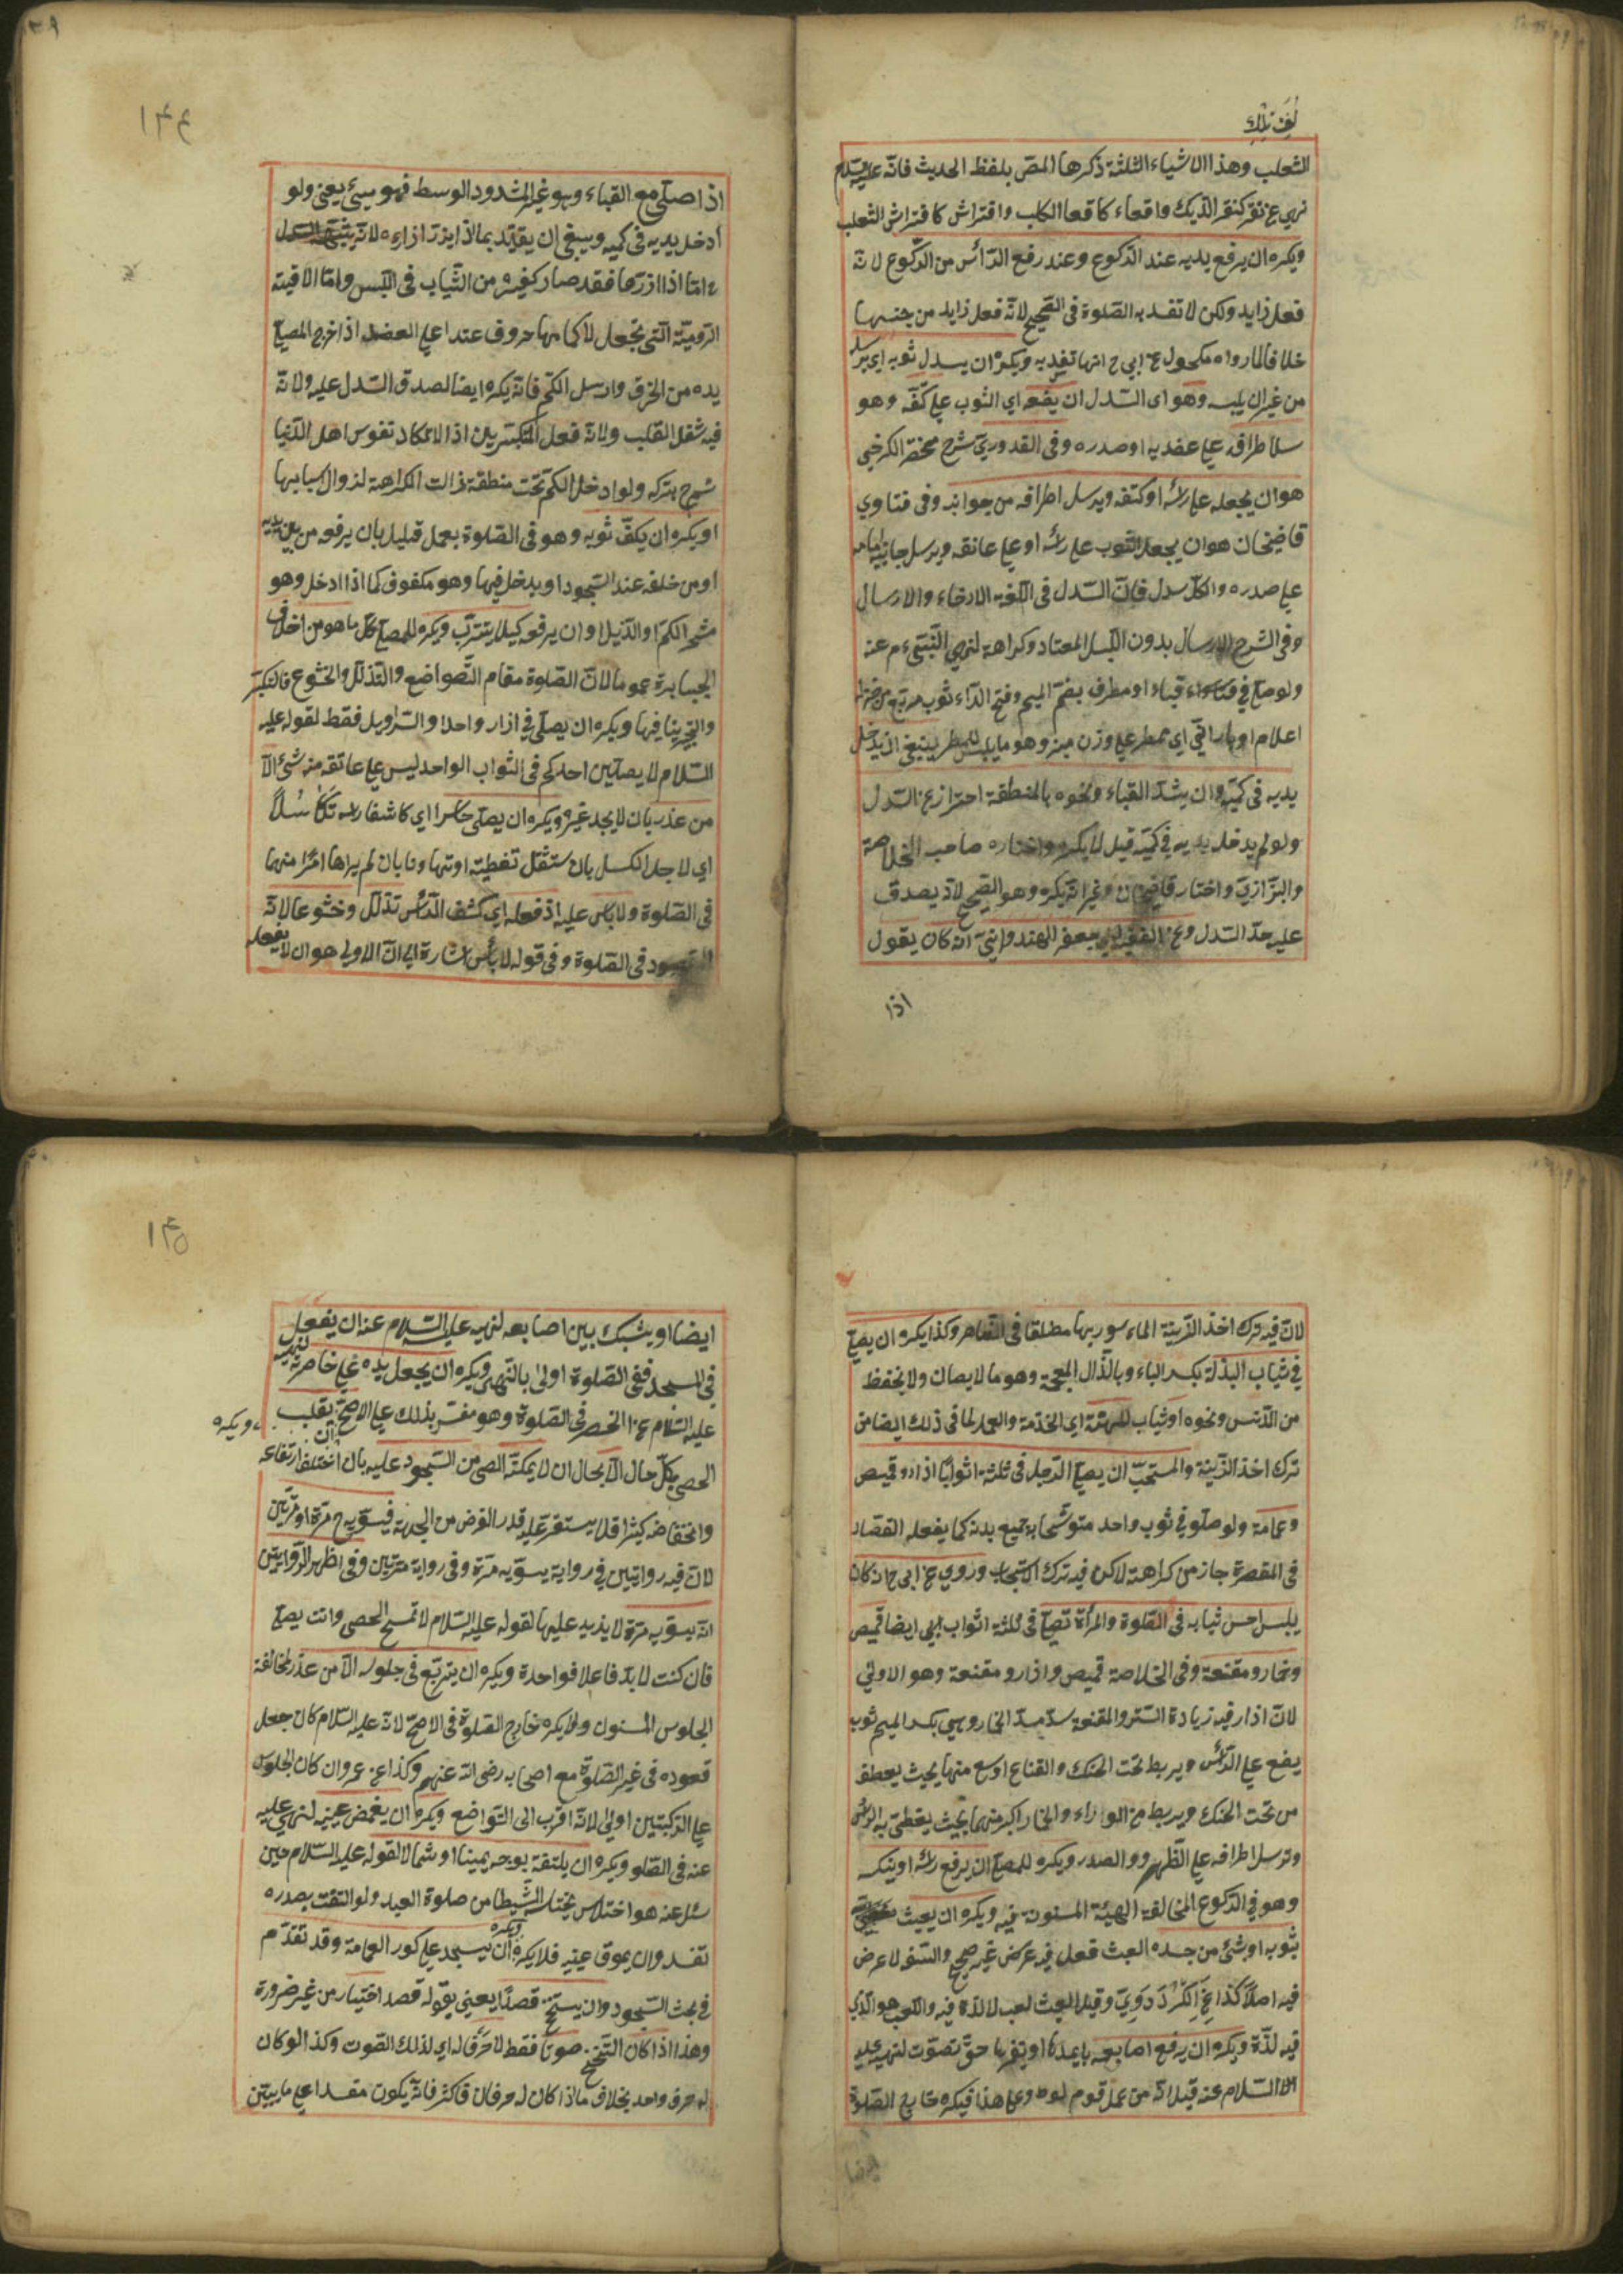 الثعلب وهذا الاشياء الثلثة ذكرها المص بلفظ الحديث فانه عليه السلام
نهي عن نقر كنقر الديك واقعاء كاقعاء الكلب وافتراش كافتراش الثعلب
ويكره ان يرفع يديه عند الركوع وعند رفع الرأس من الركوع لانه
فعل زايد ولكن لا تفسد به الصلوة في الصحيح لانه فعل زايد من جنسها
خلافا لما رواه مكحول عن ابي ح انها تفسد به ويكره ان يسدل ثوبه اي يرسله
من غير ان يلبسه وهو اى السدل ان يضعه اي الثوب علي كتفه وهو
ساطرافه علي عضديه او صدره وفي القدوري شرح مختصر الكرخي
هو ان يجعله علي رأسه او كتفه ويرسل اطرافه من جوانبه وفي فتاوي
قاضيخان هو ان يجعل الثوب علي رأسه او علي عاتقه ويرسل جانبيه امامه
علي صدره والكل سدل فان السدل في اللغة الارخاء والارسال
وفي الشرح الارسال بدون اللبس المعتاد وكراهة لنهي النبي م عنه
ولو صلي في قباء او مطرف بضم الميم وفتح الراء ثوب مربع من خز له
اعلام او باراني اي ممطر علي وزن منبر وهو ما يلبس للمطر ينبغي ان يدخل
يديه في كميه وان يشد القباء ونحوه بالمنطقة احترازا عن السدل
ولو لم يدخل يديه في كميه قيل لا يكره واختاره صاحب الخلاصة
والبزازي واختار قاضيخان وغيره انه يكره وهو الصحيح لانه يصدق
عليه حد السدل وعن الفقيه ابي جعفر الهندواني انه كان يقول
اذا
١٣٤
اذا صلي مع القباء وهو غير المشدود الوسط فهو مسيء يعني ولو
أدخل يديه في كميه وينبغي ان يقيد بما اذا لم يزر ازاره لانه يشبه السدل
اما اذا ازرها فقد صار كغيره من الثياب في اللبس واما الاقبية
الرومية التي تجعل لاكمامها خروق عند اعلي العضد اذا اخرج المصلي
يده من الخرق وارسل الكم فانه يكره ايضا لصدق السدل عليه ولانه
فيه شغل القلب ولانه فعل المتكبرين اذ الا تكاد نفوس اهل الدنيا
تسمح بتركه ولو ادخل الكم تحت منطقة زالت الكراهة لزوال اسبابها
او يكره ان يكف ثوبه وهو في الصلوة بعمل قليل بان يرفعه من بين يديه
او من خلفه عند السجود او يدخل فيها وهو مكفوف كما اذا ادخل وهو
مشمر الكم او الذيل او ان يرفعه كيلا يتترب ويكره للمصلي كل ما هو من اخلاق
الجبابرة عموما لان الصلوة مقام التواضع والتذلل والخشوع فالتكبر
والتجبر ينافيها ويكره ان يصلي في ازار واحد او السراويل فقط لقوله عليه
السلام لا يصلين احدكم في الثواب الواحد ليس علي عاتقه منه شيء الا
من عذر بان لا يجد غيره ويكره ان يصلي حاسرا اي كاشفا رأسه تكاسلا
اي لاجل الكسل بان ستثقل تغطيته او تهاونا بان لم يراها امرا منها
في الصلوة ولا بأس عليه اذ فعله اي كشف الرأس تذلل وخشوعا لانه
المقصود في الصلوة وفي قوله لا بأس اشارة الى ان الاولي هو ان لا يفعله
لان فيه ترك اخذ الزينة الماءمور بها مطلقا في الظاهر وكذا يكره ان يصلي
في ثياب البذلة بكسر الباء وبالذال المعجمة وهو ما لا يصان ولا يحفظ
من الدنس ونحوه او ثياب للمهنة اي الخذمة والعمل لما في ذلك ايضا من
ترك اخذ الزينة والمستحب ان يصلي الرجل في ثلثة اثواب اذار وقميص
وعمامة ولو صلو في ثوب واحد متوشحا به جميع بدنه كما يفعله القصار
في المقصرة جاز من كراهة لاكن فيه ترك الاستحباب وروي عن ابي ح انه كان
يلبس احسن ثيابه في الصلوة والمرأة تصلي في ثلثة اثواب ايضا قميص
وخمار ومقنعة وفي الخلاصة قميص وازار ومقنعة وهو الاولي
لان اذار فيه زيادة الستر والمقنعة تسد مسد الخمار وهي بكسر الميم ثوب
يضع علي الرأس ويربط تحت الحنك والقناع اوسع منها بحيث يعطف
من تحت الحنك ويربط من الوراء والخمار اكبر منهما بحيث يغطي به الرأس
وترسل اطرافه علي الظهر ووالصدر ويكره للمصلي ان يرفع رأسه او ينكسه
وهو في الركوع المخالفة الهيئة المسنونة فيه ويكره ان يعبث
بثوبه او شئ من جسده العبث فعل فيه عرض غير صحيح والسفه لا عرض
فيه اصلا كذا عن الكردري وقيل العبث لعب لا لذة فيه واللعب هو الذي
فيه لذة ويكره ان يرفع اصابعه بايمدها او يغمزها حتي تصوت لنهيه عليه
الا السلام عنه قيل انه من عمل قوم لوط وعلي هذا فيكره خارج الصلوة
ايضا
١٣٥
ايضا او يشبك بين اصابعه لنهيه عليه السلام عنه ان يفعل
في المسجد ففي الصلوة اولى بالنهي ويكره ان يجعل يده علي خاصرته لنهيه
عليه السلام عن الخصر في الصلوة وهو مفسر بذلك علي الاصح ويكره ان يقلب
الحصى بكل حال الا بحال ان لا يمكنه الحصى من السجود عليه بان اختلف ارتفاعه
وانخفاضه كثيرا فلا يستقر عليه قدر الفرض من الجبهة فيسويه ح مرة او مرتين
لان فيه روايتين في رواية يسويه مرة وفي رواية مرتين وفي اظهر الروايتين
انه يسويه مرة لا يزيد عليها لقوله عليه السلام لا تمسح الحصى وانت يصلي
فان كنت لا بد فاعلا فواحدة ويكره ان يتربع في جلوسه الا من عذر لمخالفة
الجلوس المسنون ولا يكره خارج الصلوة في الاصح لانه عليه السلام كان جعل
قعوده في غير الصلوة مع اصحابه رضى الله عنهم وكذا عن عمر وان كان الجلوس
علي الركبتين اولي لانه اقرب الى التواضع ويكره ان يغمض عينيه لنهيه عليه
عنه في الصلو ويكره ان يلتفت بوجهه يمينا او شمالا لقوله عليه السلام حين
سئل عنه هو اختلاس يختلسه الشيطان من صلوة العبد ولو التفت بصدره
تفسد وان بموق عينيه فلا يكره ويكره ان يسجد علي كور العمامة وقد تقدم
في بحث السجود وان يتنحنح قصدا يعني بقوله قصد اختيار من غير ضرورة
وهذا اذا كان التنحنح صوتا فقط لا حرف له اي لذلك الصوت وكذا لو كان
له حرف واحد بخلاف ما اذا كان له حرفان فاكثر فانه يكون مفسدا علي ما يبين